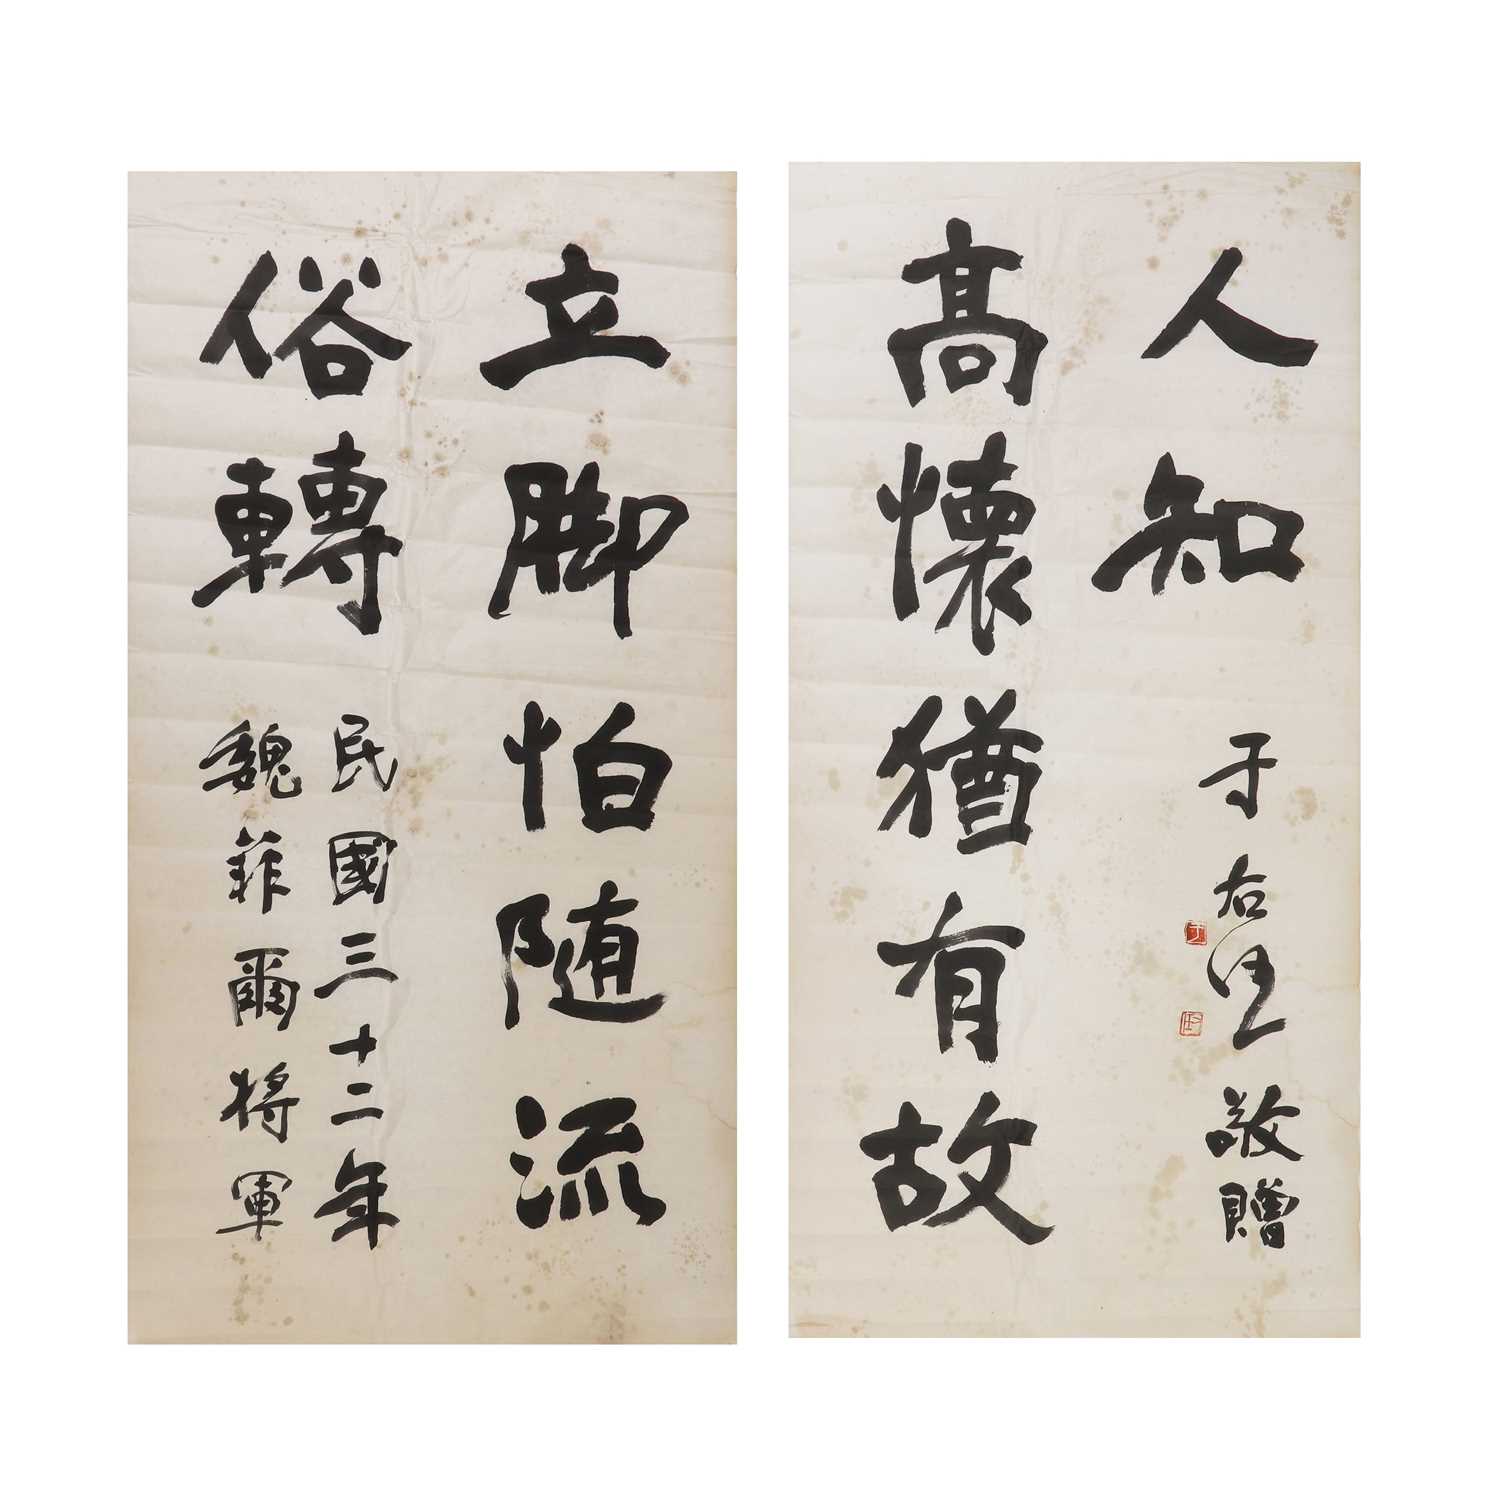 立脚怕随流
俗轉
民國三十二年
魏菲爾將軍
高懷猶有故
人知
于右任敬贈